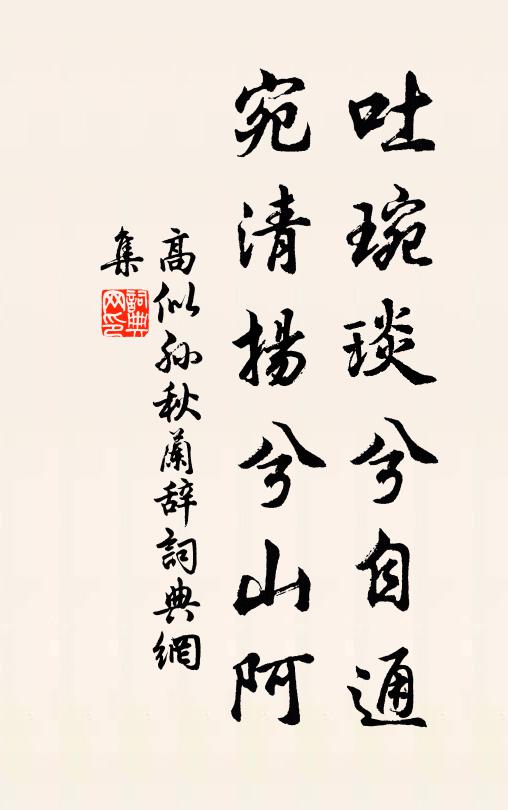 吐琬琰兮自通
宛清揚兮山阿
高似孙秋蘭辞詞典網
集
詞典
网印